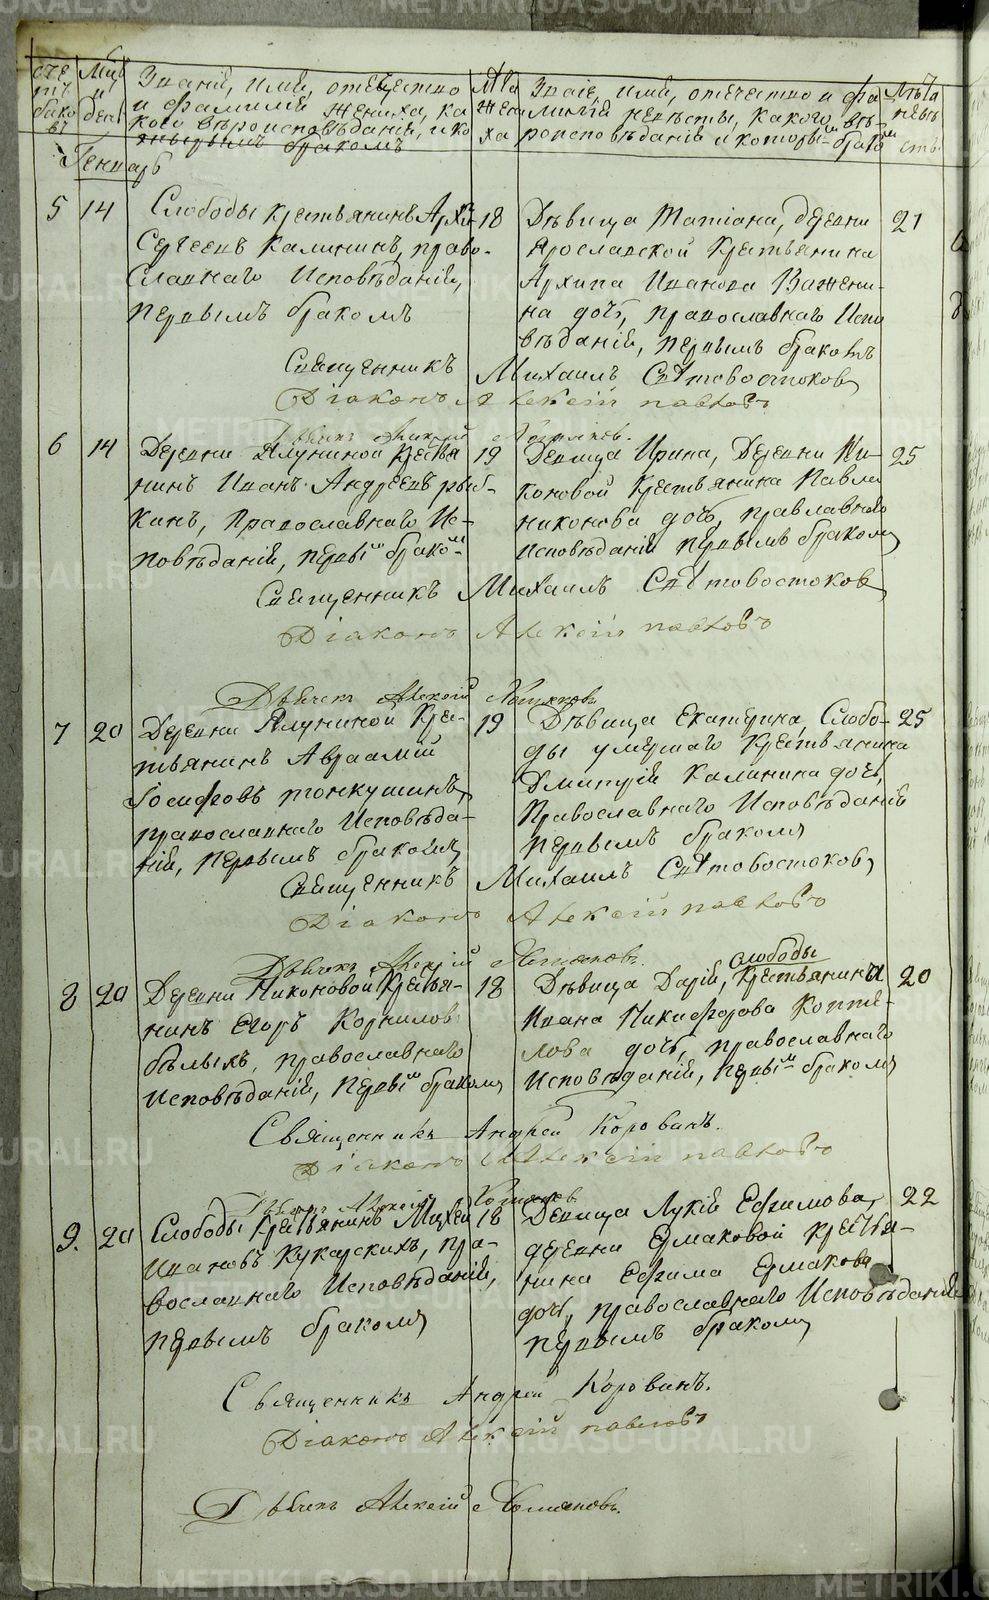 METRIKI.GASO-URAL.RU
Счетъ браковъ
Мцъ и день
Званіи, имя, отечество и фамилія жениха, какого вѣроисповѣданія, и которымъ бракомъ
Лѣта жениха
Званіе, имя, отечество и фамилія невѣсты, какого вѣроисповѣданія и которымъ бракомъ
Лѣта невѣсты
Генварь
5 14
Слободы крестьянинъ Архипъ
Сергеевъ Калининъ, право-
славнаго Исповѣданія,
первымъ бракомъ
18
Дѣвица Татіана, деревни
Ярославской Крестьянина
Архипа Иванова Важени-
на дочь, православнаго Испо
вѣданія, первымъ бракомъ
21
Священникъ Михаилъ Свѣтовостоковъ
Діаконъ Алексій Павловъ
Дьячекъ Алексій
6 14
Деревни Ялуниной Крестья
нинъ Иванъ Андреевъ рыб-
кинъ, Православнаго Ис-
повѣданія, первымъ бракомъ
19
Девица Ирина, Деревни Ни-
коновой Крестьянина Павла
никонова дочь, правлавнаго
исповѣданія первымъ бракомъ
25
Священникъ Михаилъ Свѣтовостоковъ
Діаконъ Алексій Павловъ
Дьячекъ Алексій
7 20
Деревни Ялуниной Кре-
стьянинъ Авраамій
Іосифовъ тонкушинъ,
православнаго Исповѣда-
ній, первымъ бракомъ,
19
Дѣвица Екатерина, Слобо-
ды умершаго Крестьянина
Дмитрій Калинина дочь,
Православнаго Исповѣданія
первымъ бракомъ
25
Священникъ Михаилъ Свѣтовостоковъ
Діаконъ Алексій Павловъ
Дьячекъ Алексій
8 20
Деревни Никоновой Крестья-
нинъ Егоръ Корниловъ
бѣлыхъ, православнаго
Исповѣданія, первымъ бракомъ
18
слободы
Дѣвица Дарій, Крестьянина
Ивана Никифорова Коптѣ-
лова дочь, православнаго
Исповѣданія, первымъ бракомъ
20
Священникъ Андрей Коровинъ.
Діаконъ Алексій Павловъ
Дьячекъ Алексій
9. 20
Слободы Крестьянинъ Михей
Ивановъ Кукарскихъ, пра-
вославнаго Исповѣданія,
первымъ бракомъ
18
Девица Лукія Ефимова,
деревни Ермаковой Крестья-
нина Ефима Ермакова
дочь, православнаго Исповѣданія
первымъ бракомъ
22
Священникъ Андрей Коровинъ.
Діаконъ Алексій Павловъ
Дьячекъ Алексій
METRIKI.GASO-URAL.RU